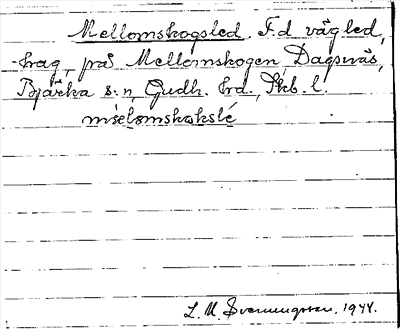 Mellomskogsled. F.d. vägled,
-krag, på Mellomskogen, Dagsnäs,
Bjärka s:n, Gudh. hrd., Skb. l.
L. M. Svenungsson, 1944.